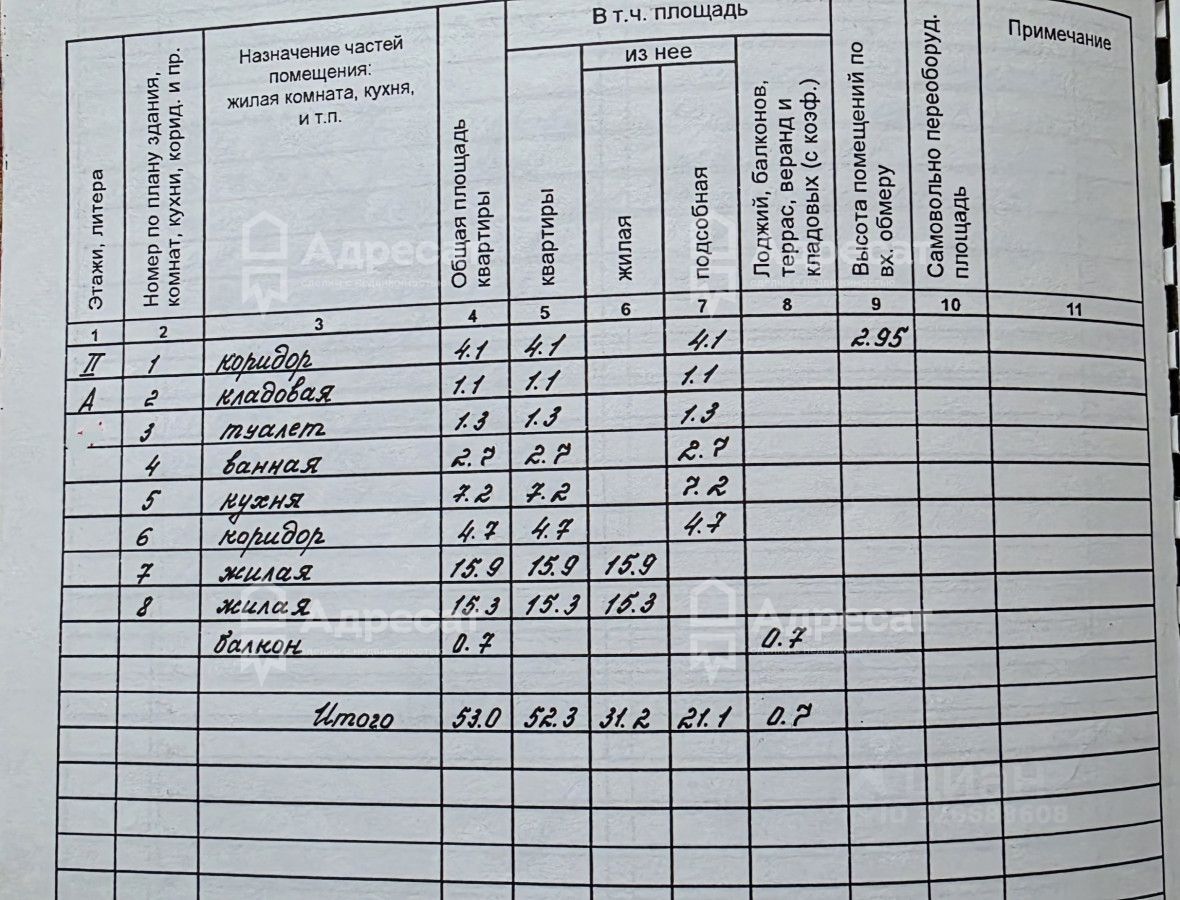 Этажи, литера
Номер по плану здания,
комнат, кухни, корид. и пр.
Назначение частей
помещения:
жилая комната, кухня,
и т.п.
Общая площадь
квартиры
В т.ч. площадь
квартиры
из нее
жилая
подсобная
Лоджий, балконов,
террас, веранд и
кладовых (с коэф.)
Высота помещений по
вх. обмеру
Самовольно переоборуд.
площадь
Примечание
1 2 3 4 5 6 7 8 9 10 11
II 1 коридор 4.1 4.1 4.1 2.95
А 2 кладовая 1.1 1.1 1.1
3 туалет 1.3 1.3 1.3
4 ванная 2.7 2.7 2.7
5 кухня 7.2 7.2 7.2
6 коридор 4.7 4.7 4.7
7 жилая 15.9 15.9 15.9
8 жилая 15.3 15.3 15.3
балкон 0.7 0.7
Итого 53.0 52.3 31.2 21.1 0.7
Адресат
сделки с недвижимостью
Адресат
сделки с недвижимостью
Адресат
сделки с недвижимостью
Адресат
сделки с недвижимостью
циан